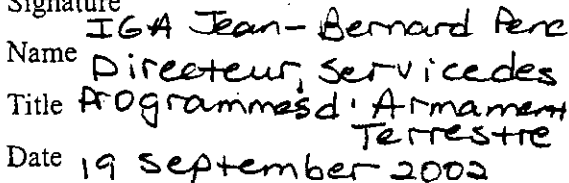 Signature
IGA Jean-Bernard Penc
Name Directeur, Servicedes
Title Programmesd'Armament
Terrestre
Date 19 September 2002